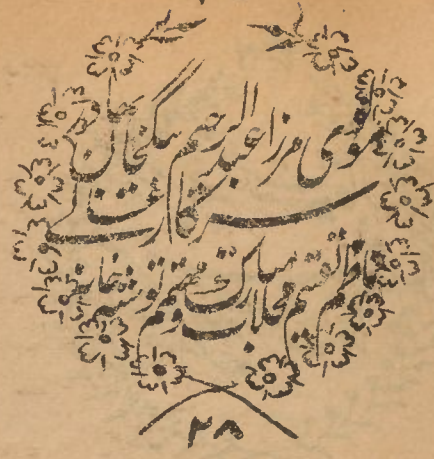 مولوی مرزا عبدالرحیم بیگخان بہادر
سرکار
ناظم تقسیم محلات مبارک و مہتمم توشہ خانہ
۲۸